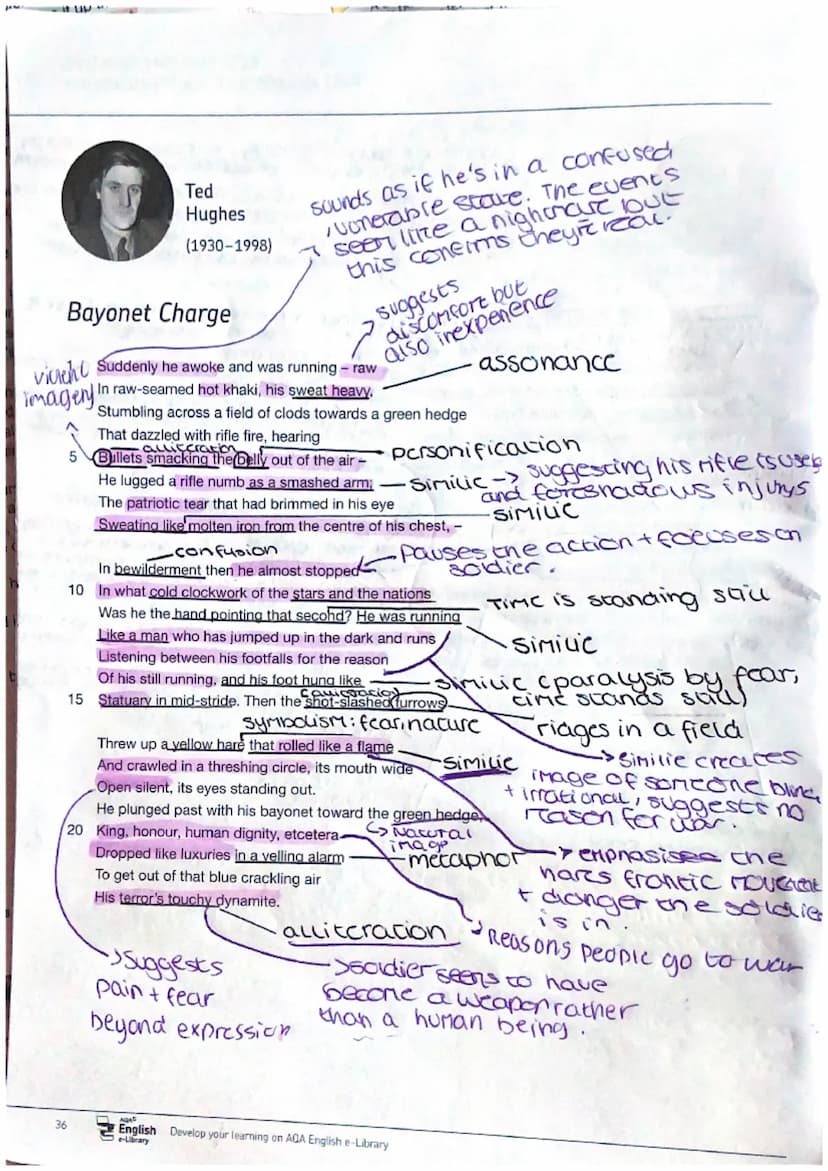 Ted
Hughes
(1930–1998)
sounds as if he's in a confused
, vunerable state. The events
seem like a nightmare but
this confirms they're real.
Bayonet Charge
suggests
discomfort but
also inexperience
violent
imagery
assonance
Suddenly he awoke and was running – raw
In raw-seamed hot khaki, his sweat heavy,
Stumbling across a field of clods towards a green hedge
That dazzled with rifle fire, hearing
alliteration
personification
5 Bullets smacking the belly out of the air –
He lugged a rifle numb as a smashed arm;
similie -> suggesting his rifle is useless
and foreshadows injurys
The patriotic tear that had brimmed in his eye
similie
Sweating like molten iron from the centre of his chest, –
confusion
Pauses the action + focuses on
soldier.
In bewilderment then he almost stopped –
10 In what cold clockwork of the stars and the nations
Time is standing still
Was he the hand pointing that second? He was running
Like a man who has jumped up in the dark and runs
similie
Listening between his footfalls for the reason
Of his still running, and his foot hung like
similie (paralysis by fear,
time stands still)
15 Statuary in mid-stride. Then the shot-slashed furrows
riages in a field
symbolism: fear, nature
Threw up a yellow hare that rolled like a flame
similie
And crawled in a threshing circle, its mouth wide
similie creates
image of someone blind
+ irrational, suggests no
reason for war.
Open silent, its eyes standing out.
He plunged past with his bayonet toward the green hedge,
Natural
image
20 King, honour, human dignity, etcetera
Dropped like luxuries in a yelling alarm
metaphor
emphasises the
hares frantic movement
+ danger the soldier
is in.
To get out of that blue crackling air
His terror's touchy dynamite.
alliteration
Reasons people go to war
suggests
pain + fear
beyond expression
soldier seems to have
become a weapon rather
than a human being.
36
AQA
English
e-Library
Develop your learning on AQA English e-Library